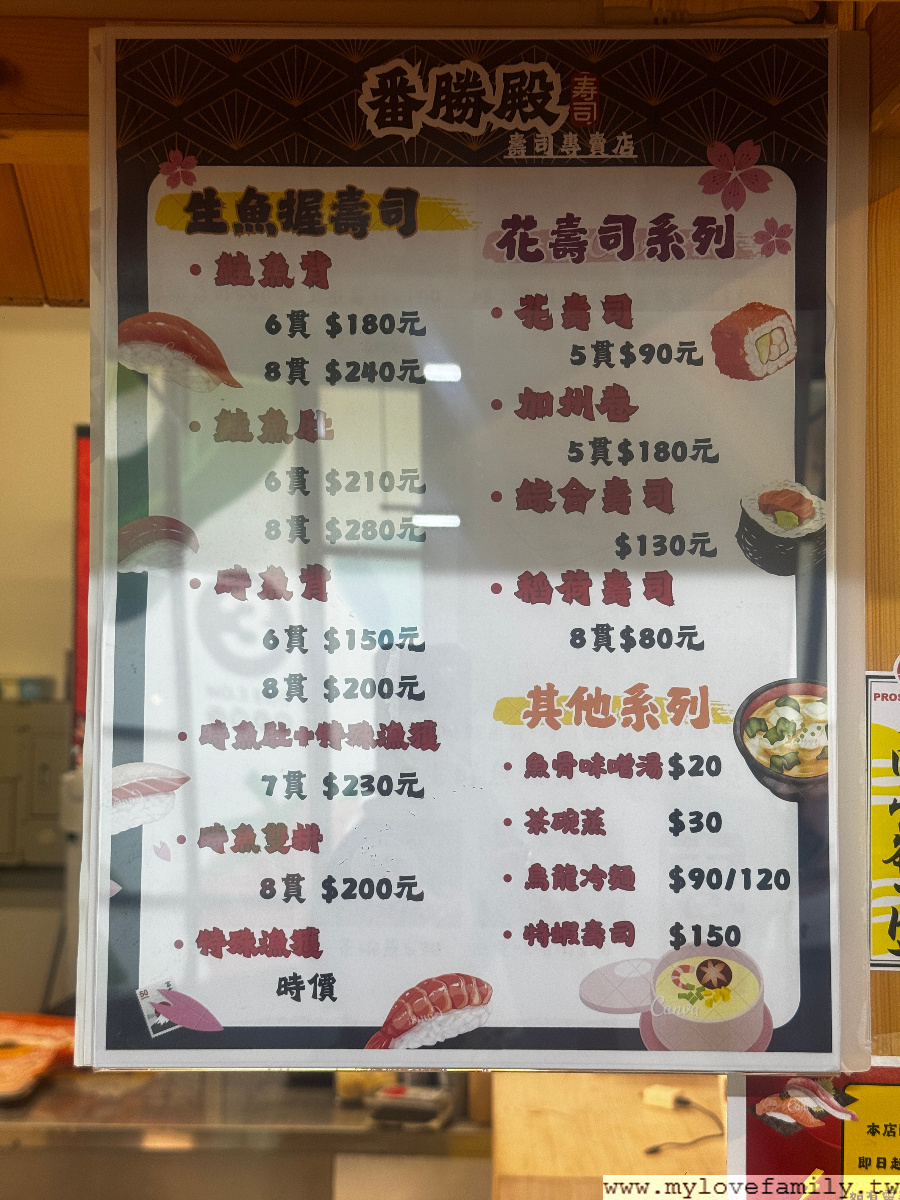 番勝殿
寿司
壽司專賣店
生魚握壽司
鮭魚背
6貫 $180元
8貫 $240元
鮭魚肚
6貫 $210元
8貫 $280元
時魚背
6貫 $150元
8貫 $200元
時魚肚+特殊漁獲
7貫 $230元
時魚雙拼
8貫 $200元
特殊漁獲
時價
花壽司系列
花壽司
5貫$90元
加州卷
5貫$180元
綜合壽司
$130元
稻荷壽司
8貫$80元
其他系列
魚骨味噌湯 $20
茶碗蒸 $30
烏龍冷麵 $90/120
特蝦壽司 $150
Canva
PROS
本店
即日起
www.mylovefamily.tw